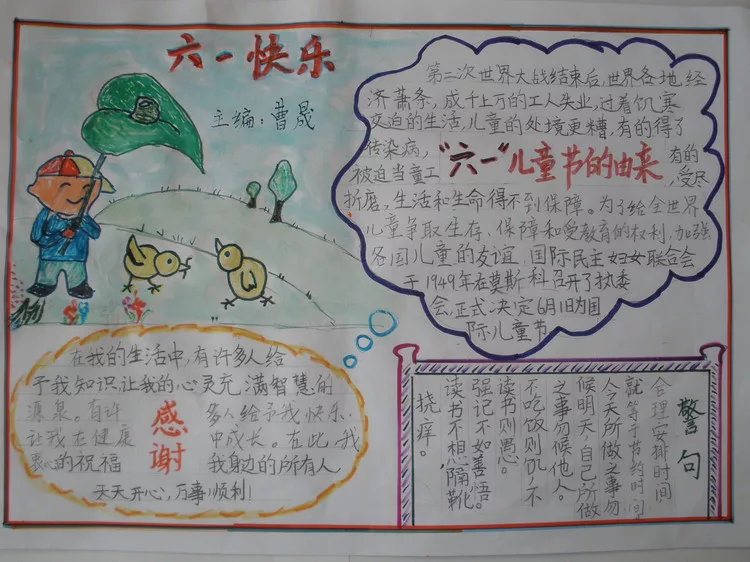 六一快乐
主编：曹晟
第二次世界大战结束后，世界各地经
济萧条，成千上万的工人失业，过着饥寒
交迫的生活，儿童的处境更糟，有的得了
传染病，
"六一"儿童节的由来
有的
被迫当童工，受尽
折磨，生活和生命得不到保障。为了给全世界
儿童争取生存、保障和受教育的权利，加强
各国儿童的友谊，国际民主妇女联合会
于1949年在莫斯科召开了执委
会，正式决定6月1日为国
际儿童节
在我的生活中，有许多人给
予我知识，让我的心灵充满智慧的
源泉。有许多人给予我快乐
让我在健康中成长。在此，我
衷心的祝福我身边的所有人
感谢
天天开心，万事顺利！
警句
合理安排时间
就等于节约时间
今天所做之事勿
候明天，自己所做
之事勿候他人。
不吃饭则饥，不
读书则愚。
强记不如善悟。
读书不想，隔靴
挠痒。